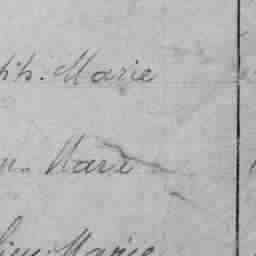 ph. Marie
n. Marie
lien Marie